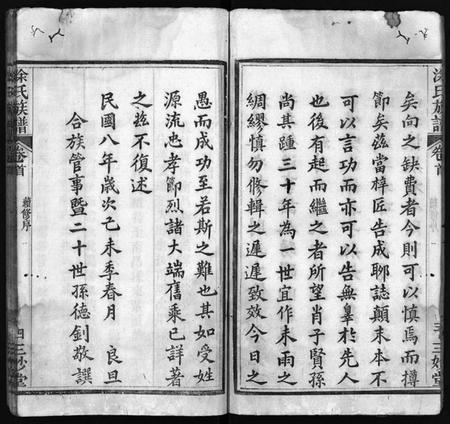 矣向之缺費者今則可以慎焉而撙
節矣茲當梓匠告成聊誌顛末本不
可以言功而亦可以告無辜於先人
也後有起而繼之者所望肖子賢孫
尚其踵三十年為一世宜作未雨之
綢繆慎勿俢輯之遲遲致效今日之
涂氏族譜
卷首
三
三妙堂
涂氏族譜
卷首
續修序
四
三妙堂
愚而成功至若斯之難也其如受姓
源流忠孝節烈諸大端舊乘已詳著
之茲不復述
民國八年歲次己未季春月 良旦
合族管事暨二十世孫德釗敬譔